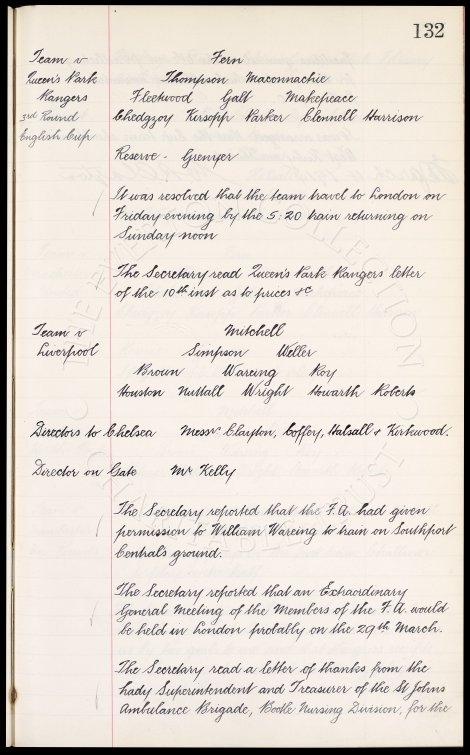 132
Team v Fern
Queen's Park Thompson Maconnachie
Rangers Fleetwood Galt Makepeace
3rd Round Chedgzoy Kirsopp Parker Clennell Harrison
English Cup
Reserve - Grenyer
It was resolved that the team travel to London on
Friday evening by the 5:20 train returning on
Sunday noon
The Secretary read Queen's Park Rangers letter
of the 10th inst as to prices &c
Team v Mitchell
Liverpool Simpson Weller
Brown Wareing Roy
Houston Nuttall Wright Howarth Roberts
Directors to Chelsea Messrs Clayton, Coffey, Halsall & Kirkwood.
Director on Gate Mr Kelly
The Secretary reported that the F.A. had given
permission to William Wareing to train on Southport
Central's ground.
The Secretary reported that an Extraordinary
General Meeting of the Members of the F.A. would
be held in London probably on the 29th March.
The Secretary read a letter of thanks from the
Lady Superintendent and Treasurer of the St Johns
Ambulance Brigade, Bootle Nursing Division, for the